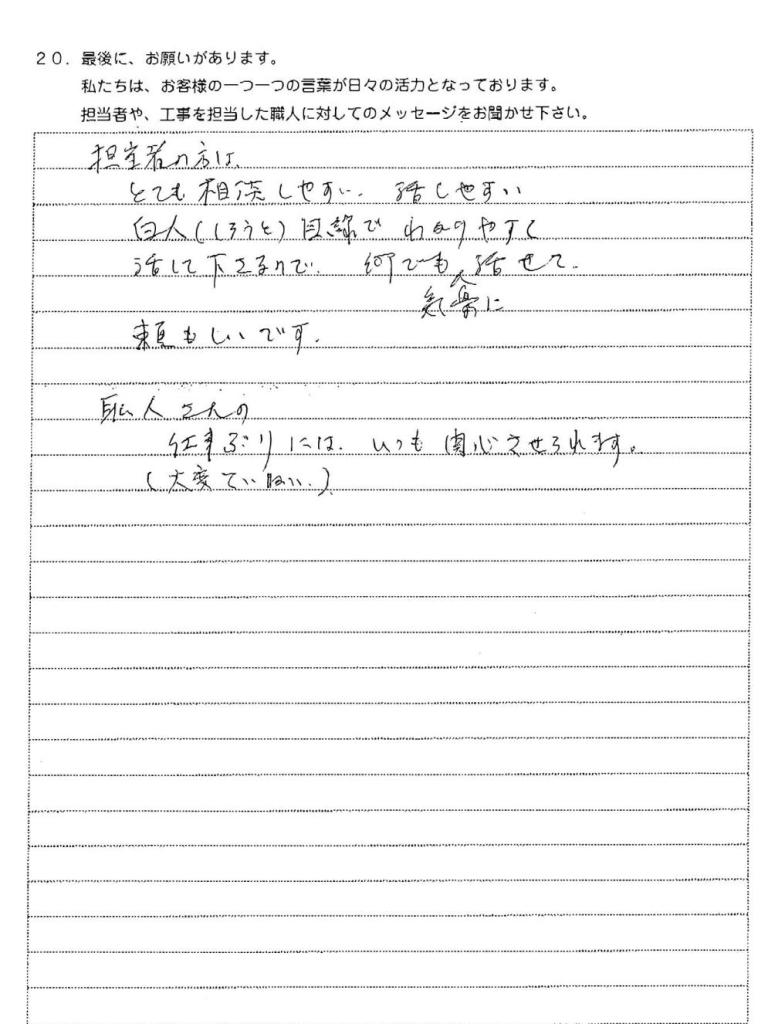 20. 最後に、お願いがあります。
私たちは、お客様の一つ一つの言葉が日々の活力となっております。
担当者や、工事を担当した職人に対してのメッセージをお聞かせ下さい。
担当者の方は、
とても相談しやすい、話しやすい
白人(しろうと)目線で わかりやすく
話して下さるので、何でも話せて、
気楽に
頼もしいです。
職人さんの
仕事ぶりには、いつも関心させられます。
(大変ていねい。)